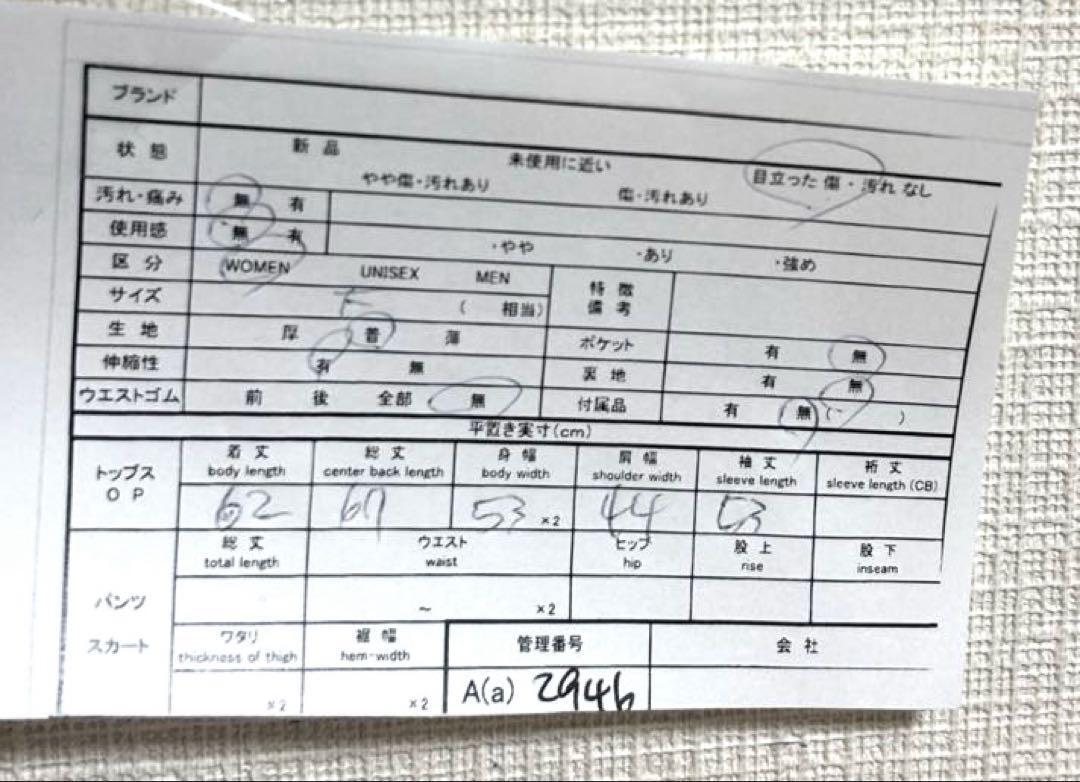 ブランド
状態 新品 未使用に近い 目立った傷・汚れなし
やや傷・汚れあり 傷・汚れあり
汚れ・痛み 無 有
使用感 無 有 ・やや ・あり ・強め
区分 WOMEN UNISEX MEN 特徴
サイズ F ( 相当) 備考
生地 厚 普 薄 ポケット 有 無
伸縮性 有 無 裏地 有 無
ウエストゴム 前 後 全部 無 付属品 有 無 ( )
平置き実寸(cm)
トップス 着丈 総丈 身幅 肩幅 袖丈 裄丈
OP body length center back length body width shoulder width sleeve length sleeve length (CB)
62 67 53 ×2 44 53
総丈 ウエスト ヒップ 股上 股下
total length waist hip rise inseam
パンツ ~ ×2
スカート ワタリ 裾幅 管理番号 会社
thickness of thigh hem-width
×2 ×2 A(a) 2946